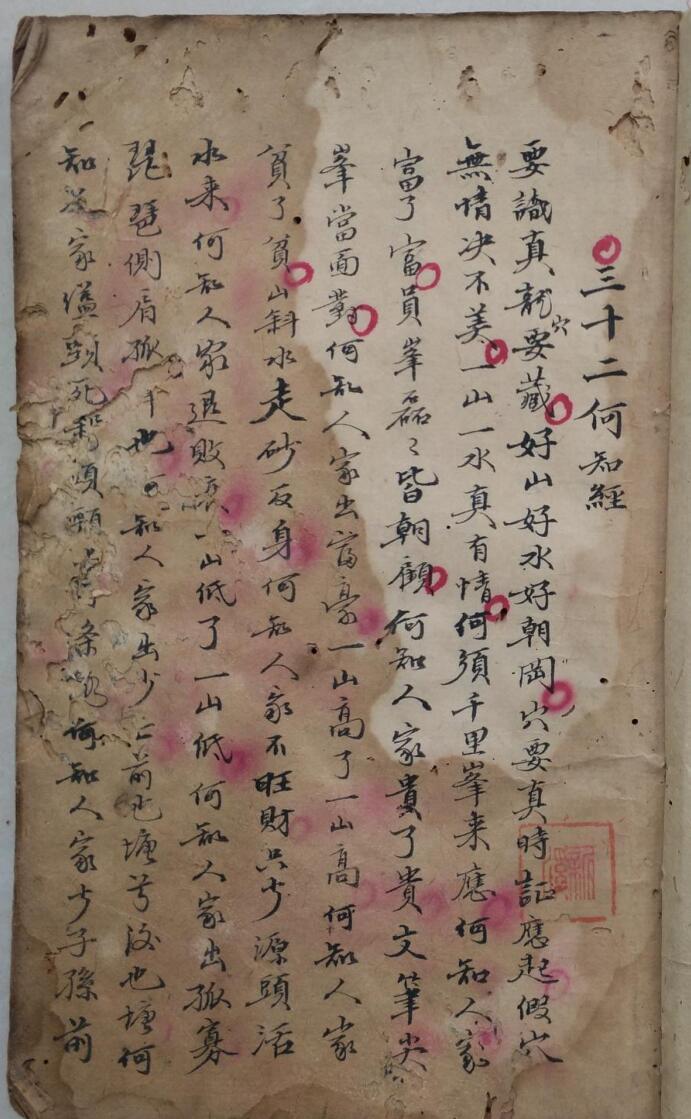 三十二何知經
要識真龍穴要藏好山好水好朝岡穴要真時証應起假穴
無情决不美一山一水真有情何須千里峯來應何知人家
富了富員峯磊〻皆朝顧何知人家貴了貴文筆尖
峯當面對何知人家出富豪一山高了一山高何知人家
貧了貧山斜水走砂反身何知人家不旺財只少源頭活
水来何知人家退敗一山低了一山低何知人家出孤寡
琵琶側肩孤也知人家出少亡前也塘兮後也塘何
知人家縊死頸前条何知人家少子孫前